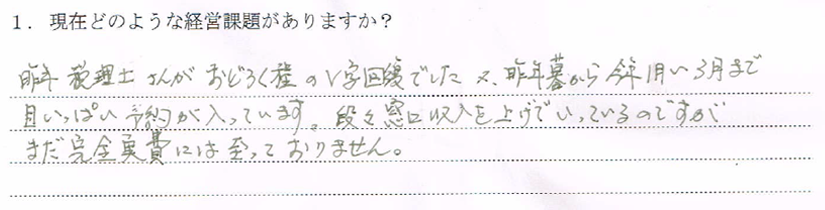 1. 現在どのような経営課題がありますか?
昨年税理士さんがおどろく程のV字回復でした 又、昨年暮から今年1月い3月まで
目いっぱい予約が入っています。段々窓口収入を上げていっているのですが
まだ完全実費には至っておりません。